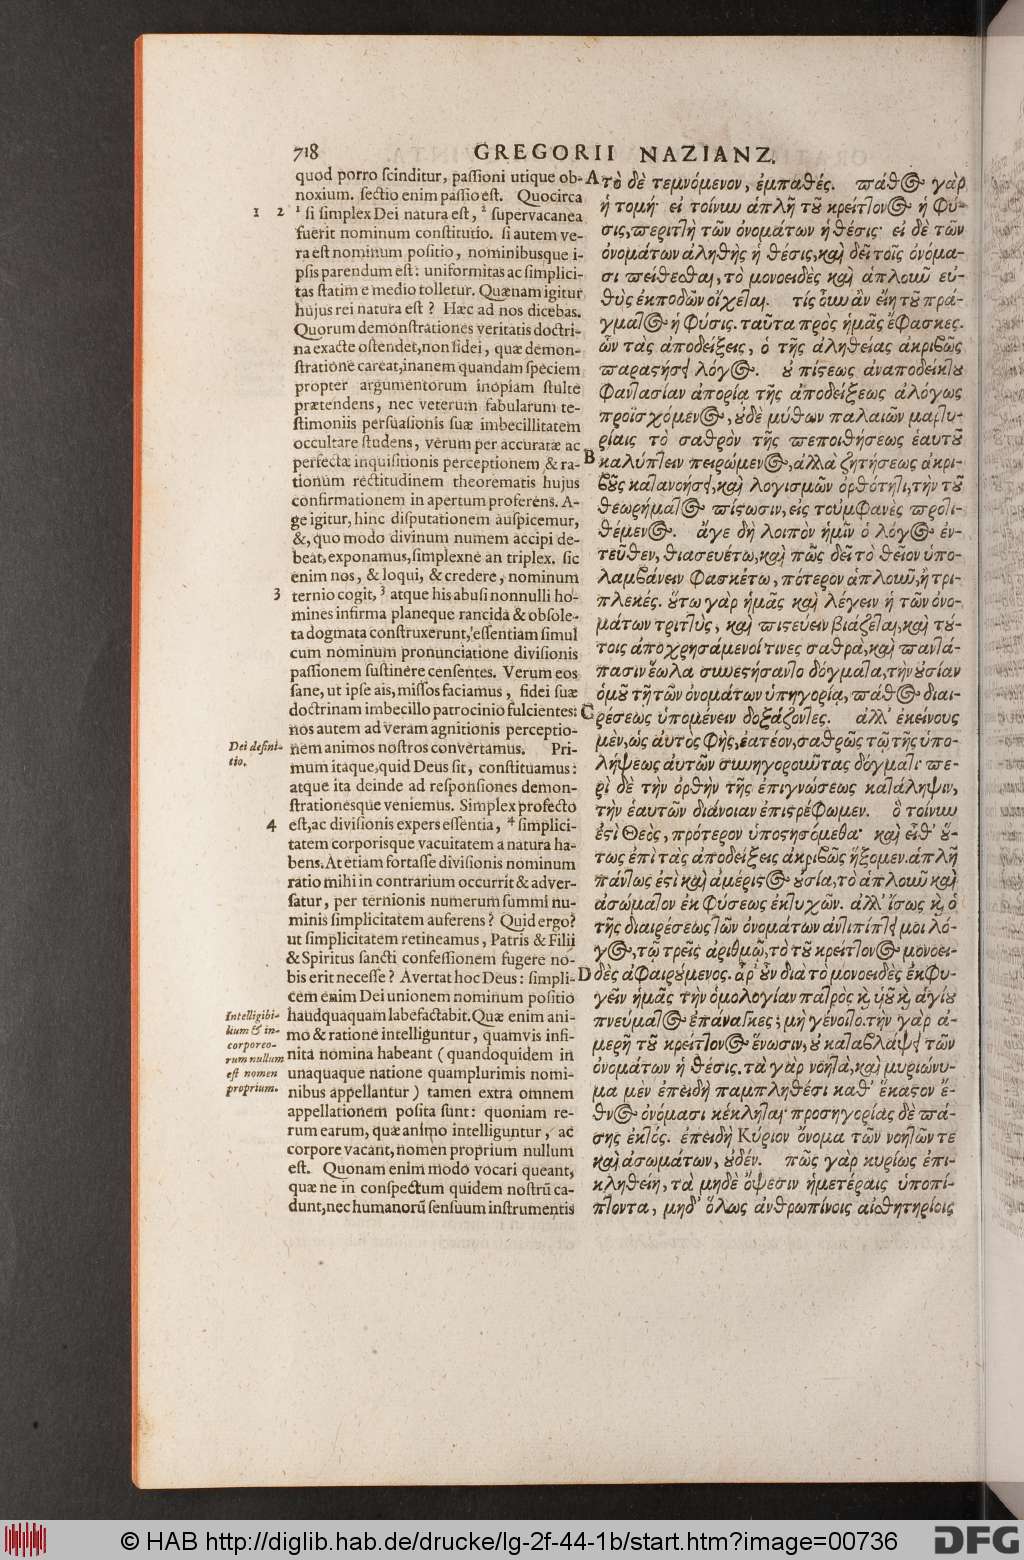 718 GREGORII NAZIANZ.
quod porro ſcinditur, paſſioni utique ob-
noxium. ſectio enim paſſio eſt. Quocirca
1 2 ¹ ſi ſimplex Dei natura eſt, ² ſupervacanea
fuerit nominum conſtitutio. ſi autem ve-
ra eſt nominum poſitio, nominibusque i-
pſis parendum eſt: uniformitas ac ſimplici-
tas ſtatim e medio tolletur. Quænam igitur
hujus rei natura eſt? Hæc ad nos dicebas.
Quorum demonſtrationes veritatis doctri-
na exacte oſtendet, non fidei, quæ demon-
ſtratione careat, inanem quandam ſpeciem
propter argumentorum inopiam ſtulte
prætendens, nec veterum fabularum te-
ſtimoniis perſuaſionis ſuæ imbecillitatem
occultare ſtudens, verum per accuratæ ac
perfectæ inquiſitionis perceptionem & ra-
tionum rectitudinem theorematis hujus
confirmationem in apertum proferens. A-
ge igitur, hinc diſputationem auſpicemur,
&, quo modo divinum numem accipi de-
beat, exponamus, ſimplexne an triplex. ſic
enim nos, & loqui, & credere, nominum
3 ternio cogit, ³ atque his abuſi nonnulli ho-
mines infirma planeque rancida & obſole-
ta dogmata conſtruxerunt, eſſentiam ſimul
cum nominum pronunciatione diviſionis
paſſionem ſuſtinere cenſentes. Verum eos
ſane, ut ipſe ais, miſſos faciamus, fidei ſuæ
doctrinam imbecillo patrocinio fulcientes:
nos autem ad veram agnitionis perceptio-
Dei defini-
tio.
nem animos noſtros convertamus. Pri-
mum itaque, quid Deus ſit, conſtituamus:
atque ita deinde ad reſponſiones demon-
ſtrationesque veniemus. Simplex profecto
4 eſt, ac diviſionis expers eſſentia, ⁴ ſimplici-
tatem corporisque vacuitatem a natura ha-
bens. At etiam fortaſſe diviſionis nominum
ratio mihi in contrarium occurrit & adver-
ſatur, per ternionis numerum ſummi nu-
minis ſimplicitatem auferens? Quid ergo?
ut ſimplicitatem retineamus, Patris & Filii
& Spiritus ſancti confeſſionem fugere no-
bis erit neceſſe? Avertat hoc Deus: ſimpli-
cem enim Dei unionem nominum poſitio
Intelligibi-
lium & in-
corporeo-
rum nullum
eſt nomen
proprium.
haudquaquam labefactabit. Quæ enim ani-
mo & ratione intelliguntur, quamvis infi-
nita nomina habeant (quandoquidem in
unaquaque natione quamplurimis nomi-
nibus appellantur) tamen extra omnem
appellationem poſita ſunt: quoniam re-
rum earum, quæ animo intelliguntur, ac
corpore vacant, nomen proprium nullum
eſt. Quonam enim modo vocari queant,
quæ ne in conſpectum quidem noſtrū ca-
dunt, nec humanorū ſenſuum inſtrumentis
A τὸ δὲ τεμνόμενον, ἐμπαθές. πάθος γὰρ
ἡ τομή· εἰ τοίνυν ἁπλῆ τοῦ κρείττονος ἡ φύ-
σις, περιττὴ τῶν ὀνομάτων ἡ θέσις· εἰ δὲ τῶν
ὀνομάτων ἀληθὴς ἡ θέσις, καὶ δεῖ τοῖς ὀνόμα-
σι πείθεσθαι, τὸ μονοειδὲς καὶ ἁπλοῦν εὐ-
θὺς ἐκποδὼν οἴχεται. τίς οὖν ἂν εἴη τοῦ πρά-
γματος ἡ φύσις. ταῦτα πρὸς ἡμᾶς ἔφασκες.
ὧν τὰς ἀποδείξεις, ὁ τῆς ἀληθείας ἀκριβῶς
παραστήσει λόγος. οὐ πίστεως ἀναποδείκτου
φαντασίαν ἀπορίᾳ τῆς ἀποδείξεως ἀλόγως
προϊσχόμενος, οὐδὲ μύθων παλαιῶν μαρτυ-
ρίαις τὸ σαθρὸν τῆς πεποιθήσεως ἑαυτοῦ
B καλύπτειν πειρώμενος, ἀλλὰ ζητήσεως ἀκρι-
βοῦς κατανοήσει, καὶ λογισμῶν ὀρθότητι, τὴν τοῦ
θεωρήματος πίστωσιν, εἰς τοὐμφανὲς προτι-
θέμενος. ἄγε δὴ λοιπὸν ἡμῖν ὁ λόγος ἐν-
τεῦθεν, θιασευέτω, καὶ πῶς δεῖ τὸ θεῖον ὑπο-
λαμβάνειν φασκέτω, πότερον ἁπλοῦν, ἢ τρι-
πλεκές. οὕτω γὰρ ἡμᾶς καὶ λέγειν ἡ τῶν ὀνο-
μάτων τριττὺς, καὶ πιστεύειν βιάζεται, καὶ τού-
τοις ἀποχρησάμενοί τινες σαθρὰ, καὶ παντά-
πασιν ἕωλα συνεστήσαντο δόγματα, τὴν οὐσίαν
ὁμοῦ τῇ τῶν ὀνομάτων ὑπηγορίᾳ, πάθος διαι-
C ρέσεως ὑπομένειν δοξάζοντες. ἀλλ' ἐκείνους
μὲν, ὡς αὐτὸς φὴς, ἐατέον, σαθρῶς τῷ τῆς ὑπο-
λήψεως αὐτῶν συνηγοροῦντας δόγματι· πε-
ρὶ δὲ τὴν ὀρθὴν τῆς ἐπιγνώσεως κατάληψιν,
τὴν ἑαυτῶν διάνοιαν ἐπιστρέφωμεν. ὃ τοίνυν
ἐστὶ Θεὸς, πρότερον ὑποστησόμεθα· καὶ εἶθ' οὕ-
τως ἐπὶ τὰς ἀποδείξεις ἀκριβῶς ἥξομεν. ἁπλῆ
πάντως ἐστὶ καὶ ἀμέριστος οὐσία, τὸ ἁπλοῦν καὶ
ἀσώματον ἐκ φύσεως ἐκτυχῶν. ἀλλ' ἴσως καὶ ὁ
τῆς διαιρέσεως τῶν ὀνομάτων ἀντιπίπτει μοι λό-
γος, τῷ τρεῖς ἀριθμῷ, τὸ τοῦ κρείττονος μονοει-
D δὲς ἀφαιρούμενος. ἆρ' οὖν διὰ τὸ μονοειδὲς ἐκφυ-
γεῖν ἡμᾶς τὴν ὁμολογίαν πατρὸς καὶ υἱοῦ καὶ ἁγίου
πνεύματος ἐπάναγκες; μὴ γένοιτο. τὴν γὰρ ἀ-
μερῆ τοῦ κρείττονος ἕνωσιν, οὐ καταβλάψει τῶν
ὀνομάτων ἡ θέσις. τὰ γὰρ νοητὰ, καὶ μυριώνυ-
μα μὲν ἐπειδὴ παμπληθέσι καθ' ἕκαστον ἔ-
θνος ὀνόμασι κέκληται· προσηγορίας δὲ πά-
σης ἐκτός. ἐπειδὴ Κύριον ὄνομα τῶν νοητῶν τε
καὶ ἀσωμάτων, οὐδέν. πῶς γὰρ κυρίως ἐπι-
κληθείη, τὰ μηδὲ ὄψεσιν ἡμετέραις ὑποπί-
πτοντα, μηδ' ὅλως ἀνθρωπίνοις αἰσθητηρίοις
© HAB http://diglib.hab.de/drucke/lg-2f-44-1b/start.htm?image=00736 DFG